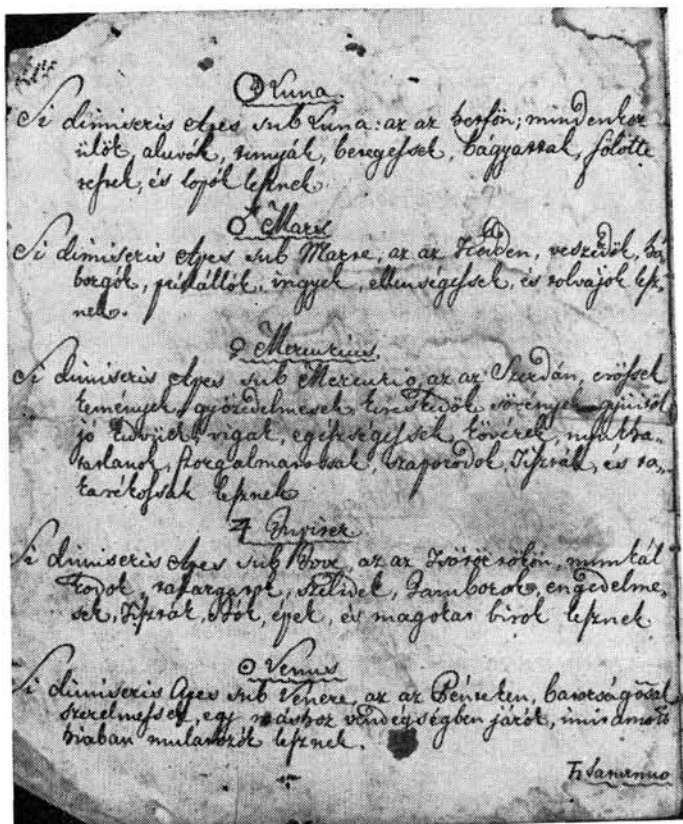 ☽ Luna.
Si dimiseris Apes sub Luna: az az hetfön; mindenkor
ülök, aluvók, tunyák, betegessek, bágyattak, fölötte
restek, és lopók lesznek.
♂ Mars
Si dimiseris Apes sub Marte, az az Kedden, veszedök, há-
borgók, prédállók, irigyek, ellenségessek, és tolvajok lesz-
nek.
☿ Mercurius.
Si dimiseris Apes sub Mercurio, az az Szerdán, erössek
kemények, gyözedelmesek, kereskedök, gyüitöl
jó kedvüek, vigak, egésségessek, kövérek, munkha-
szorgalmatossak, szaporodok, Tiszták, és ta-
karékossak lesznek
♃ Jupiter
Si dimiseris Apes sub Jove, az az Tsötörtökön, munkál
kodok, takargatok, szelidek, Jamborok, engedelme-
sek, Tiszták, épek, és magokat birok lesznek.
♀ Venus
Si dimiseris Apes sub Venere, az az Pénteken, baratságossak
szerelmessek, egy máshoz vendégségben járók, imit amott
hiaban mulatozók lesznek.
♄ Saturnuo